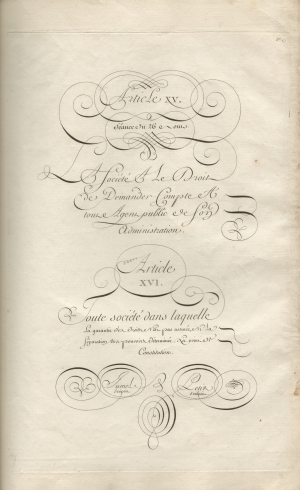 Article XV.
Séance du 26 Aoust
LA Société A Le Droit
de Demander Compte A
tout Agent public de son
Administration.
Article
XVI.
Toute société dans laquelle
la garantie des Droits n'Est pas assurée, ni la
séparation des pouvoirs Déterminée, n'a point de
Constitution.
Jumel